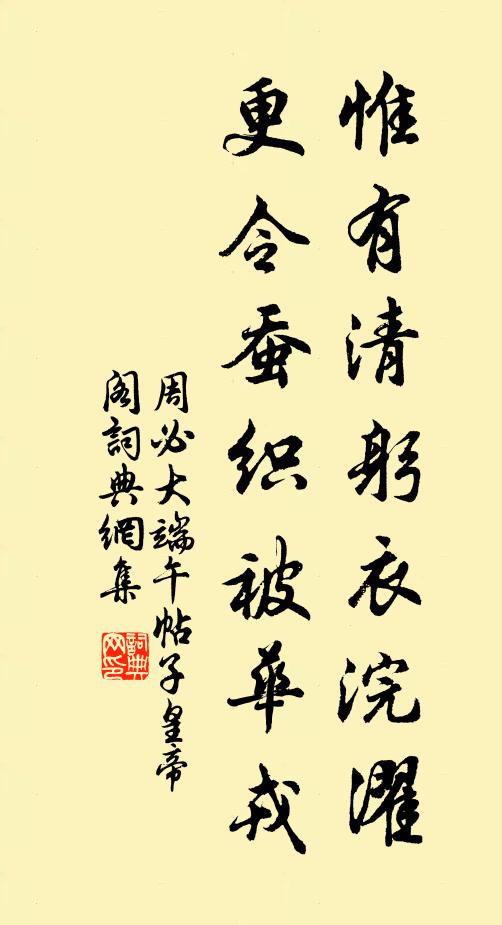 惟有清躬衣浣濯
更令蚕织被华戎
周必大端午帖子皇帝
阁詞典網集
詞典
网印